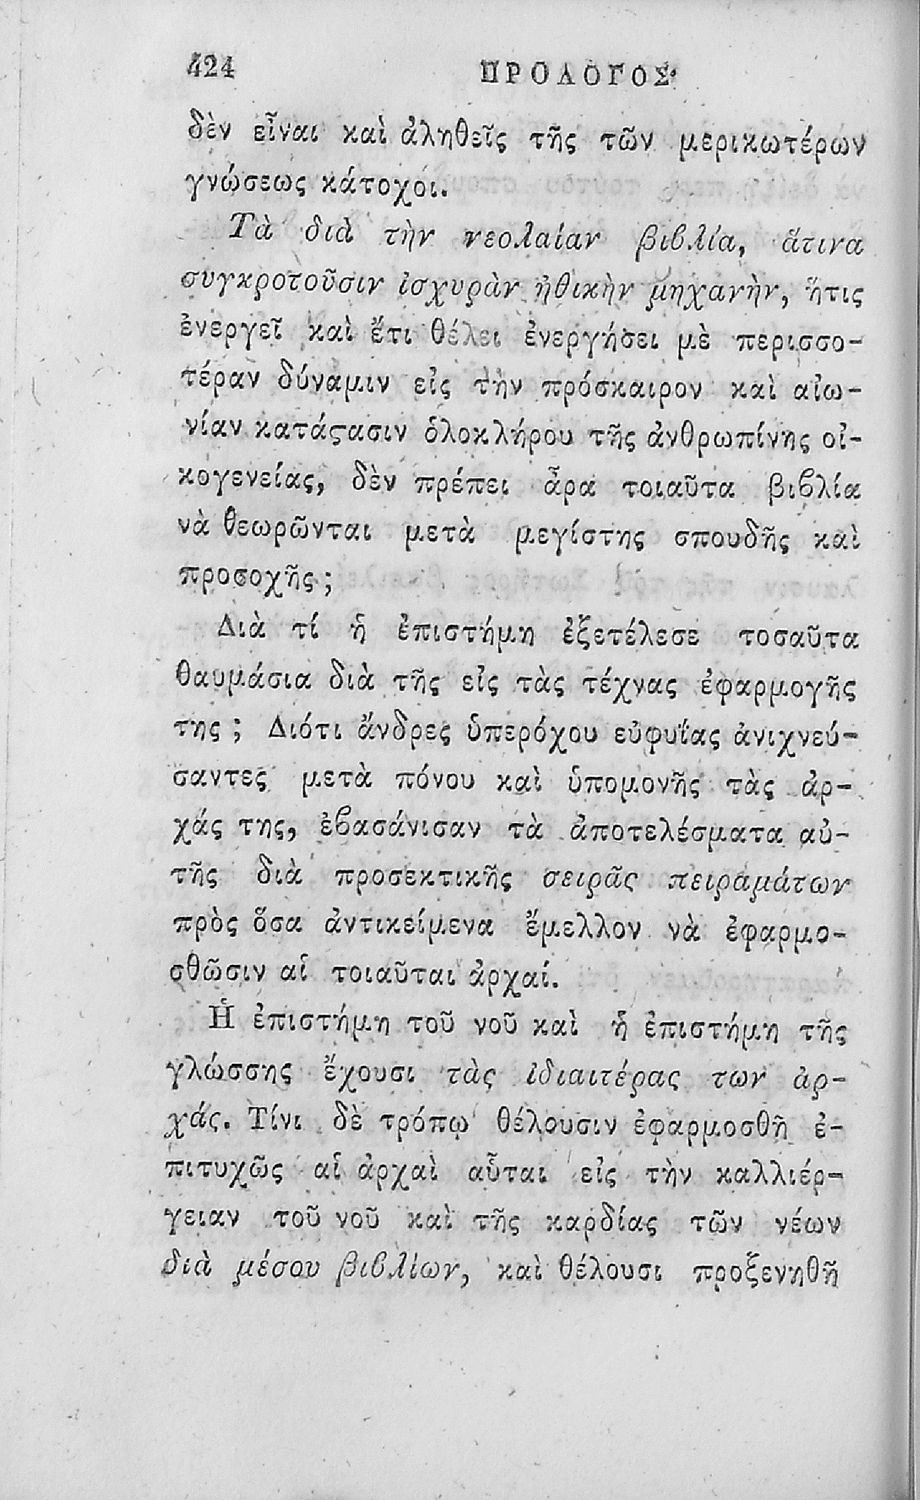 424 ΠΡΟΛΟΓΟΣ·
δὲν εἶναι καὶ ἀληθεῖς τῆς τῶν μερικωτέρων
γνώσεως κάτοχοι.
Τὰ διὰ τὴν νεολαίαν βιβλία, ἅτινα
συγκροτοῦσιν ἰσχυρὰν ἠθικὴν μηχανὴν, ἥτις
ἐνεργεῖ καὶ ἔτι θέλει ἐνεργήσει μὲ περισσο-
τέραν δύναμιν εἰς τὴν πρόσκαιρον καὶ αἰω-
νίαν κατάςασιν ὁλοκλήρου τῆς ἀνθρωπίνης οἰ-
κογενείας, δὲν πρέπει ἆρα τοιαῦτα βιβλία
νὰ θεωρῶνται μετὰ μεγίστης σπουδῆς καὶ
προσοχῆς ;
Διὰ τί ἡ ἐπιστήμη ἐξετέλεσε τοσαῦτα
θαυμάσια διὰ τῆς εἰς τὰς τέχνας ἐφαρμογῆς
της ; Διότι ἄνδρες ὑπερόχου εὐφυΐας ἀνιχνεύ-
σαντες μετὰ πόνου καὶ ὑπομονῆς τὰς ἀρ-
χάς της, ἐβασάνισαν τὰ ἀποτελέσματα αὐ-
τῆς διὰ προσεκτικῆς σειρᾶς πειραμάτων
πρὸς ὅσα ἀντικείμενα ἔμελλον νὰ ἐφαρμο-
σθῶσιν αἱ τοιαῦται ἀρχαί.
Ἡ ἐπιστήμη τοῦ νοῦ καὶ ἡ ἐπιστήμη τῆς
γλώσσης ἔχουσι τὰς ἰδιαιτέρας των ἀρ-
χάς. Τίνι δὲ τρόπῳ θέλουσιν ἐφαρμοσθῆ ἐ-
πιτυχῶς αἱ ἀρχαὶ αὗται εἰς τὴν καλλιέρ-
γειαν τοῦ νοῦ καὶ τῆς καρδίας τῶν νέων
διὰ μέσου βιβλίων, καὶ θέλουσι προξενηθῆ